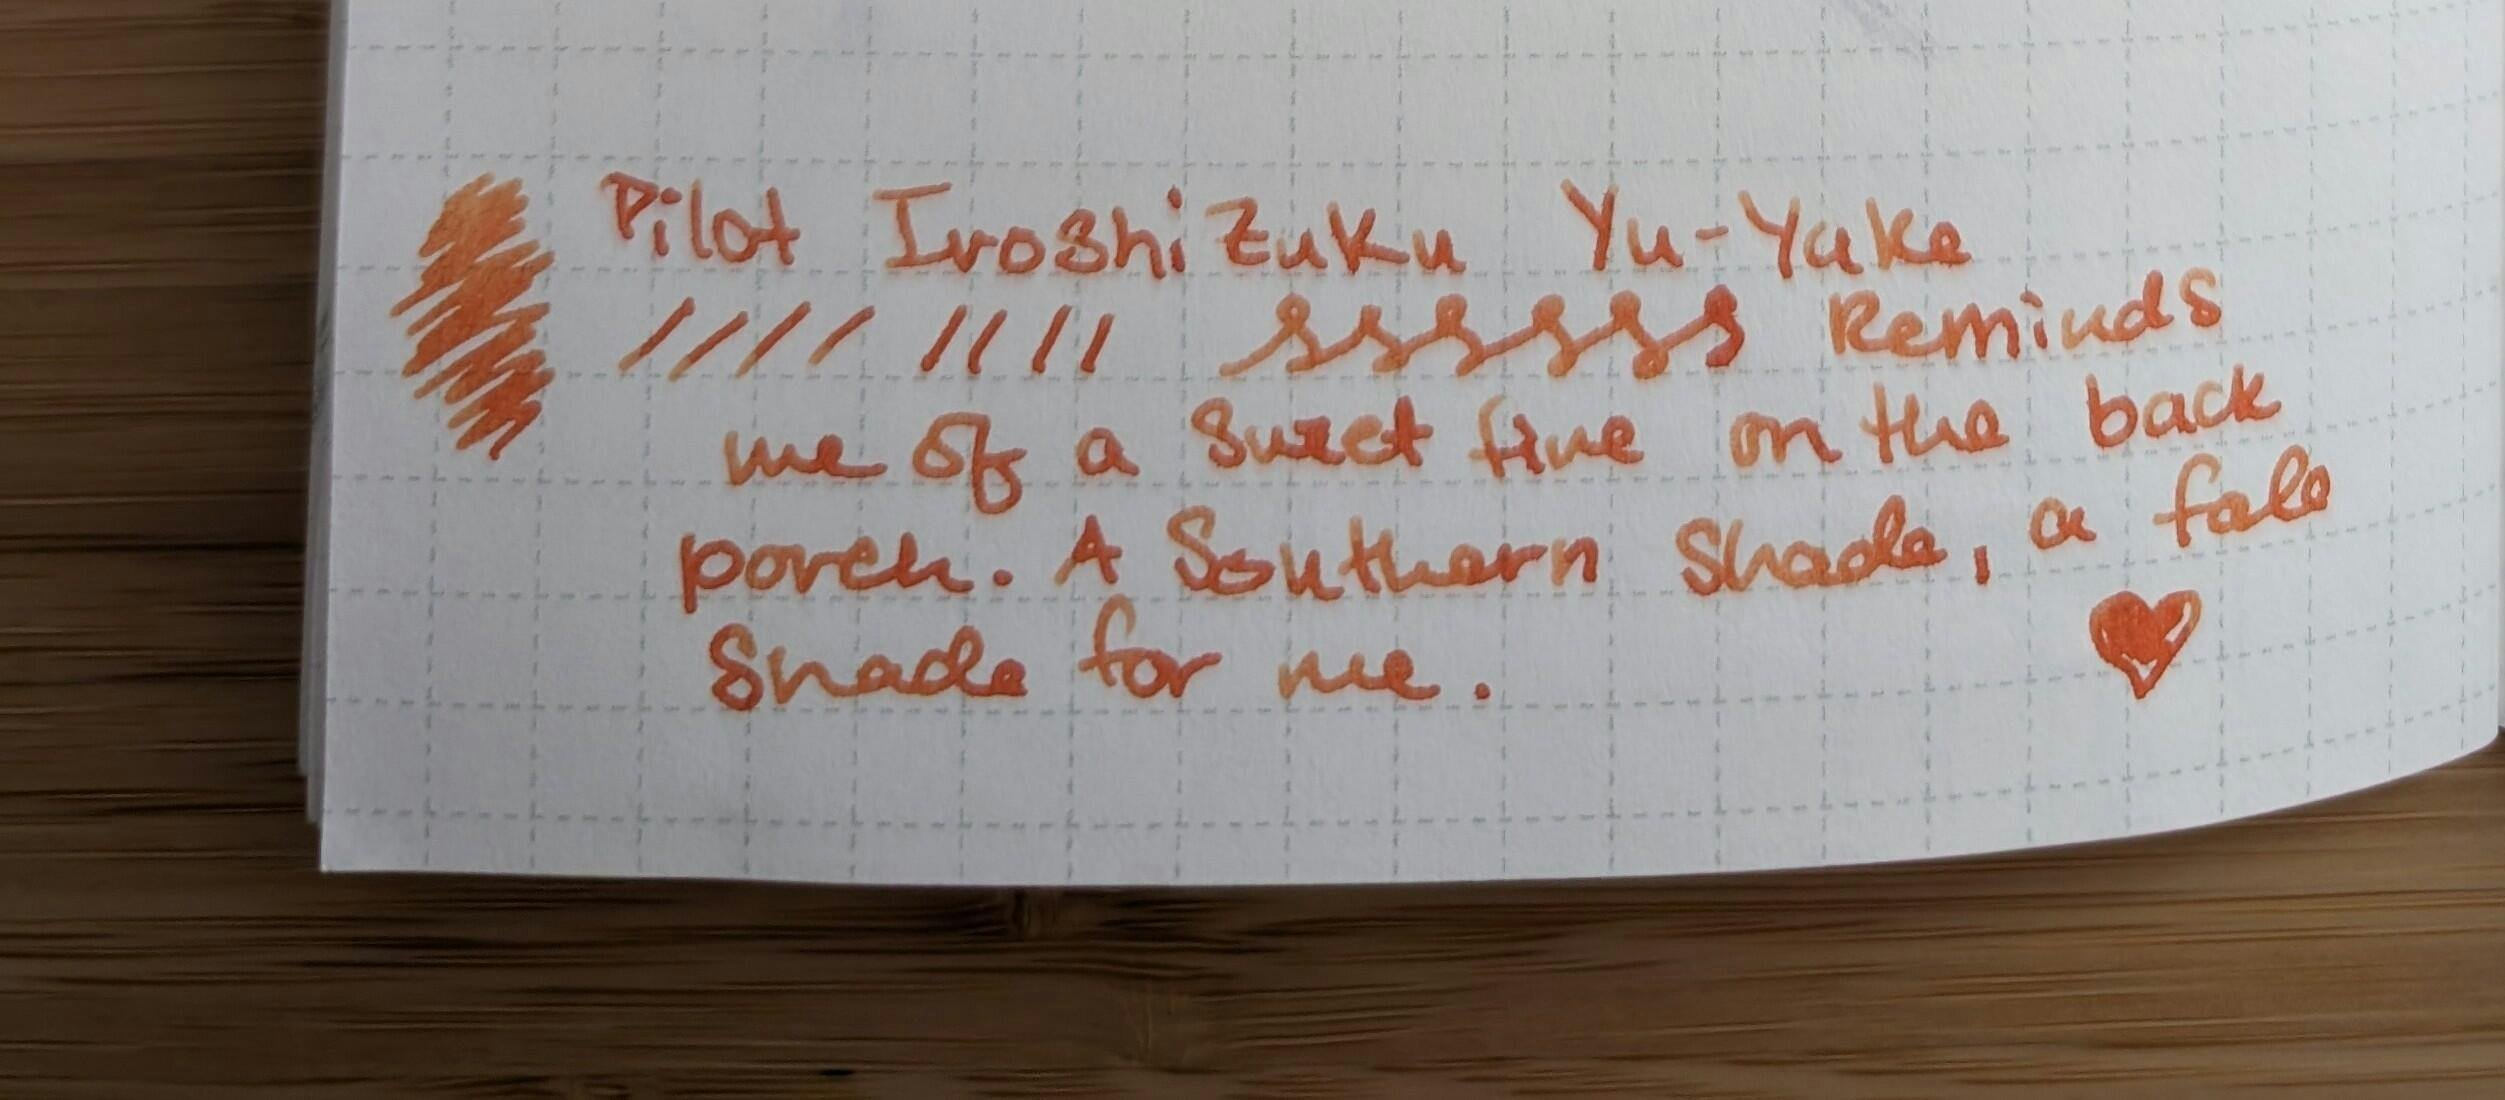 Pilot Iroshizuku Yu-Yake
Reminds
me of a Sweet fire on the back
porch. A Southern Shade, a
Shade for me.